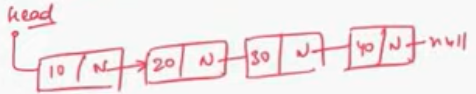 head
10 N 20 N 30 N 40 N null